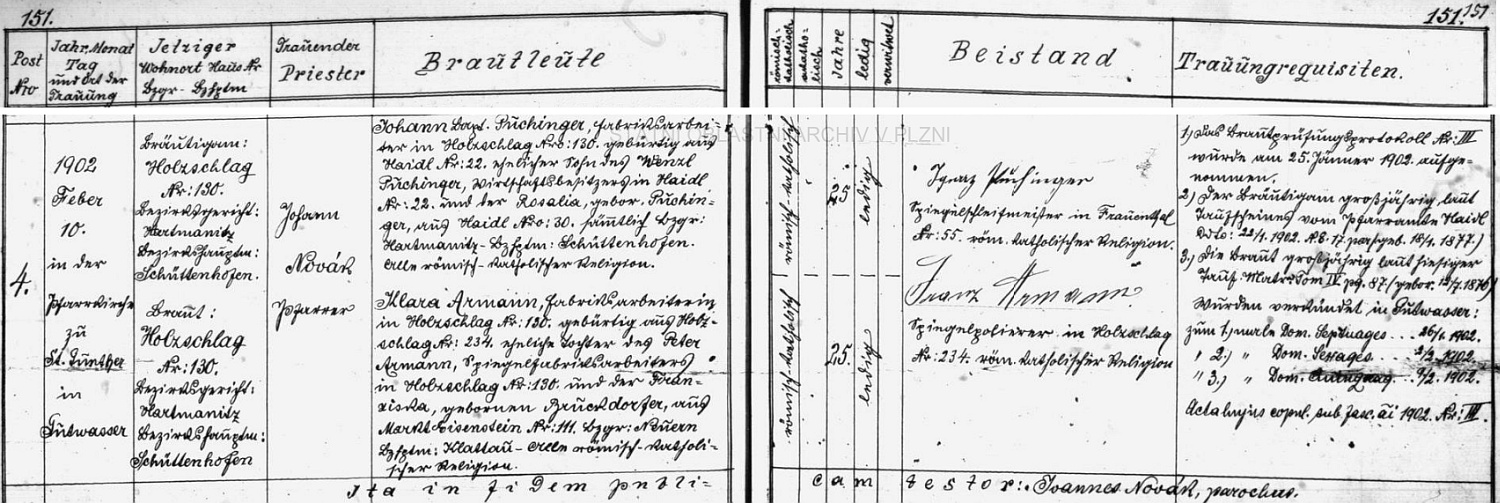 151.
Post
Nro
Jahr, Monat
Tag
und Ort der
Trauung
Jetziger
Wohnort Haus Nr
Bzgr - Bzhptm
Trauender
Priester
Brautleute
151. 151
römisch-
katholisch
akatho-
lisch
Jahre
ledig
verwitwet
Beistand
Trauungrequisiten.
STÁTNÍ OBLASTNÍ ARCHIV V PLZNI
4.
1902
Feber
10.
in der
Pfarrkirche
zu
St. Gunther
in
Gutwasser
Bräutigam:
Holzschlag
Nr: 130.
Bezirksgericht:
Hartmanitz
Bezirkshauptm:
Schüttenhofen.
Braut:
Holzschlag
Nr: 130.
Bezirksgericht:
Hartmanitz
Bezirkshauptm:
Schüttenhofen
Johann
Novák
Pfarrer
Johann Bapt. Puchinger, Fabriksarbei-
ter in Holzschlag Nro: 130. gebürtig aus
Haidl Nr: 22. ehelicher Sohn des Wenzl
Puchinger, Wirtschaftsbesitzers in Haidl
Nr: 22. und der Rosalia, gebor. Puchin-
ger, aus Haidl Nro: 30. sämmtlich Bzgr:
Hartmanitz - Bzhptm: Schüttenhofen.
Alle römisch-katholischer Religion.
Klara Armann, Fabriksarbeiterin
in Holzschlag Nr: 130. gebürtig aus Holz-
schlag Nr: 234. eheliche Tochter des Peter
Armann, Spiegelfabriksarbeiters
in Holzschlag Nr: 130. und der Fran-
ziska, gebornen Bruckdorfer, aus
Markt Eisenstein Nr: 111. Bzgr: Neuern
Bzhptm: Klattau - Alle römisch-katholi-
scher Religion.
römisch-katholisch
25
ledig
römisch-katholisch
25.
ledig
Ignaz Puchinger
Spiegelschleifmeister in Frauenthal
Nr: 55. röm. katholischer Religion.
Franz Armann
Spiegelpolierer in Holzschlag
Nr: 234. röm. katholischer Religion
1) Das Brautprüfungsprotokoll Nr: IV
wurde am 25. Jänner 1902. aufge-
nommen.
2) Der Bräutigam großjährig, laut
Taufscheines vom Pfarramte Haidl
dto: 22/1. 1902. N.E. 17. 1877.)
3.) Die Braut großjährig laut hiesiger
Tauf-Matr: Tom IV pg. 87. (gebor. 1876)
Wurden verkündet in Gutwasser:
zum 1) male Dom. Septuages . . . 26/1. 1902.
" 2.) " Dom. Sexages . . . 2/2. 1902.
" 3.) " Dom. Quinquag . . . 9/2. 1902.
Acta hujus copul. sub fasc. ai 1902. Nr: IV.
Ita in fidem publi-
cam testor: Joannes Novák, parochus.